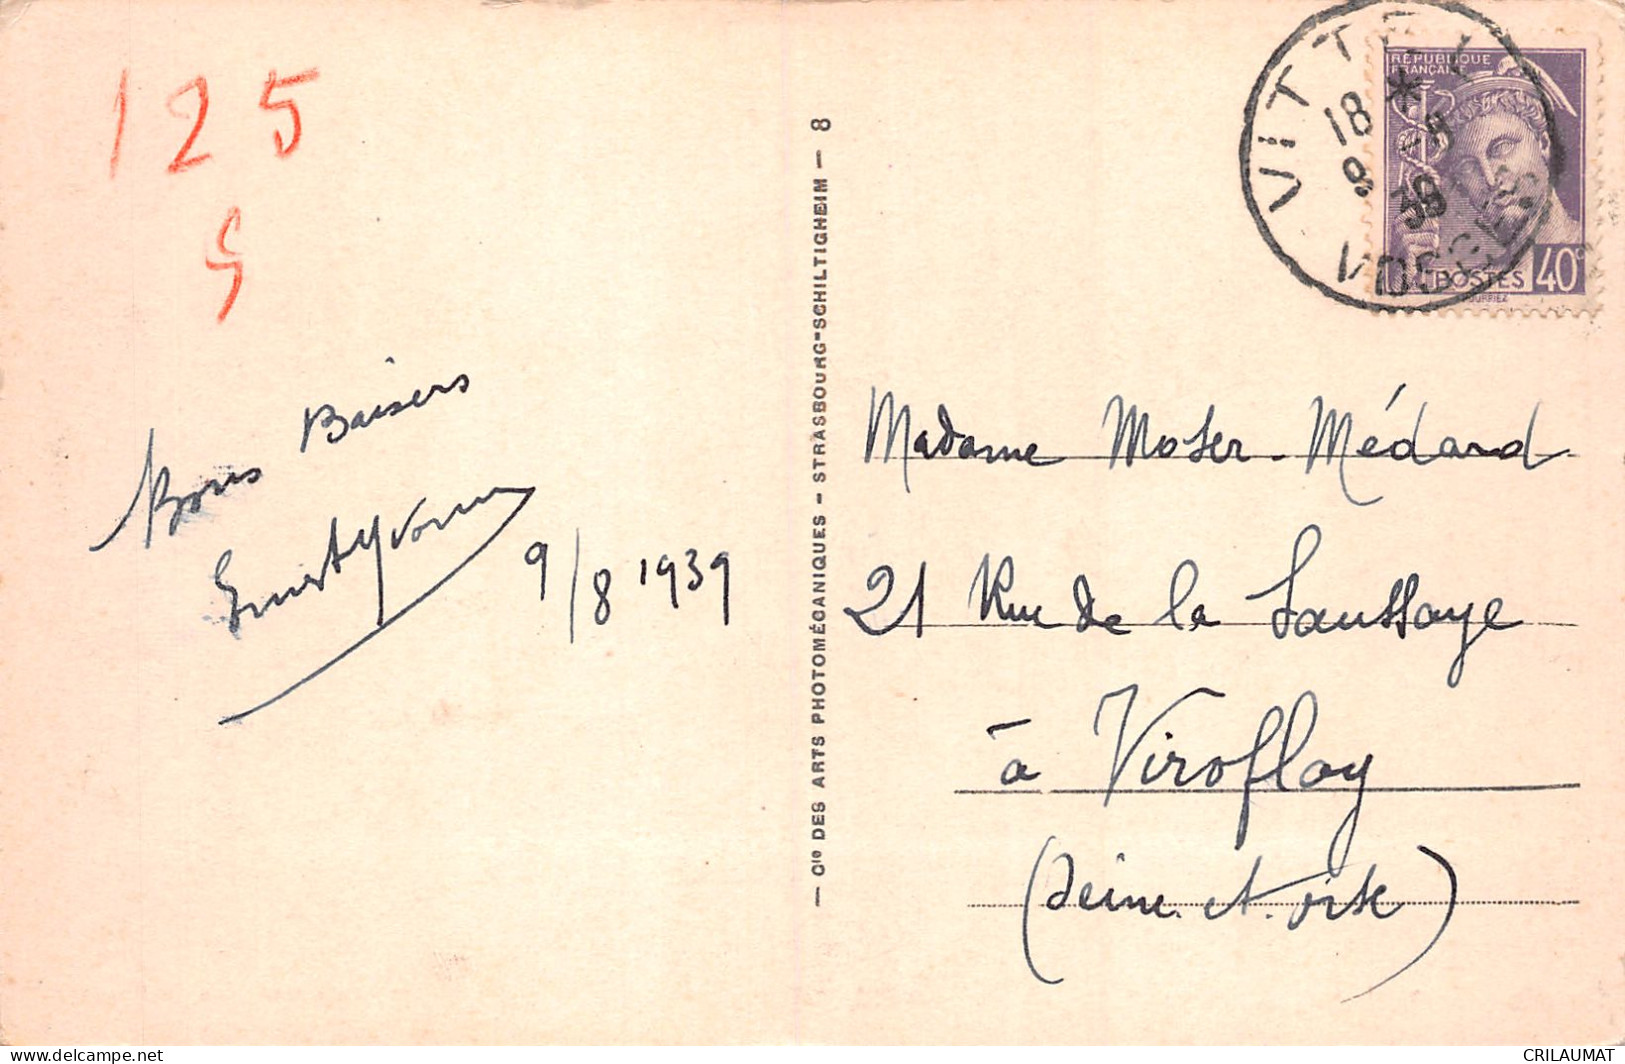 125
5
VITTEL
18 * -8
8 39
VOSGES
RÉPUBLIQUE
FRANÇAISE
POSTES 40c
Bons Baisers
Ernest Yvonne
9/8 1939
— Cie DES ARTS PHOTOMÉCANIQUES - STRASBOURG-SCHILTIGHEIM — 8
Madame Moser-Médard
21 Rue de la Saussaye
à Viroflay
(Seine et Oise)
delcampe.net
CRILAUMAT